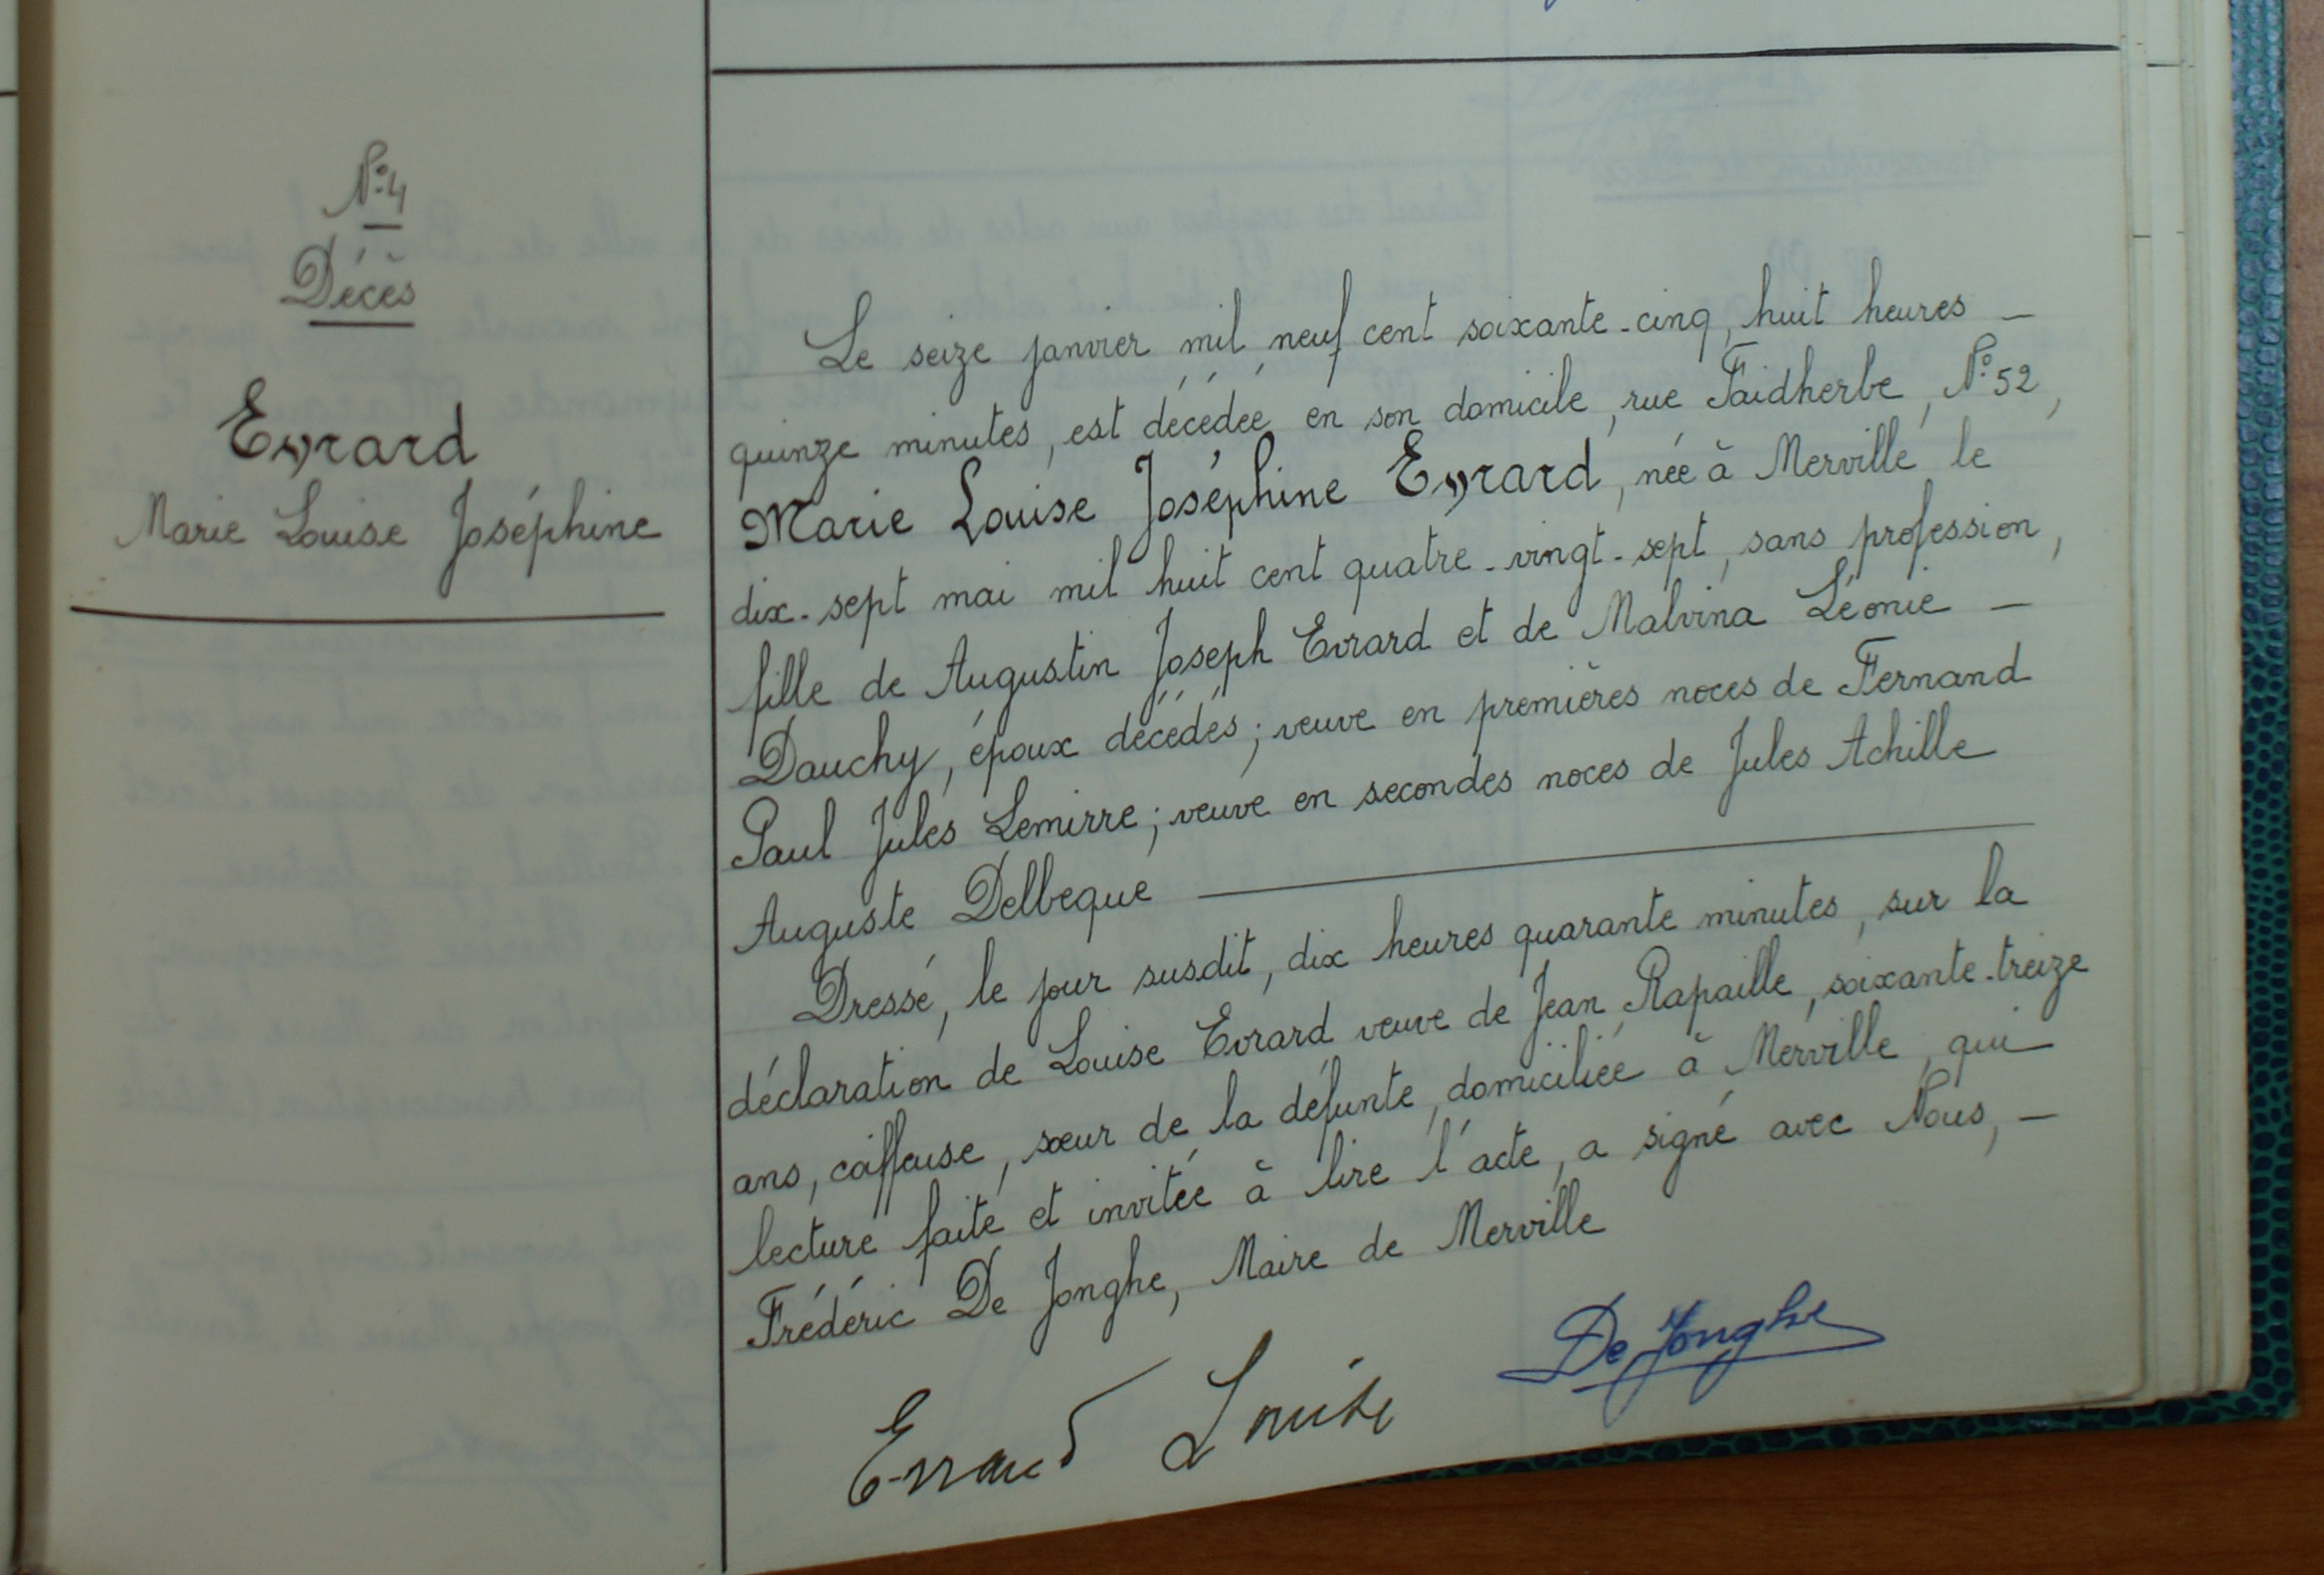 N° 4
Décès
Evrard
Marie Louise Joséphine
Le seize janvier mil neuf cent soixante-cinq, huit heures —
quinze minutes, est décédée en son domicile, rue Faidherbe, N° 52,
Marie Louise Joséphine Evrard, née à Merville le
dix-sept mai mil huit cent quatre-vingt-sept, sans profession,
fille de Augustin Joseph Evrard et de Malvina Léonie —
Dauchy, époux décédés ; veuve en premières noces de Fernand
Paul Jules Lemirre ; veuve en secondes noces de Jules Achille
Auguste Delbeque —
Dressé, le jour susdit, dix heures quarante minutes, sur la
déclaration de Louise Evrard veuve de Jean Rapaille, soixante-treize
ans, coiffeuse, sœur de la défunte, domiciliée à Merville, qui
lecture faite et invitée à lire l'acte, a signé avec Nous, —
Frédéric De Jonghe, Maire de Merville
De Jonghe
Evrard Louise